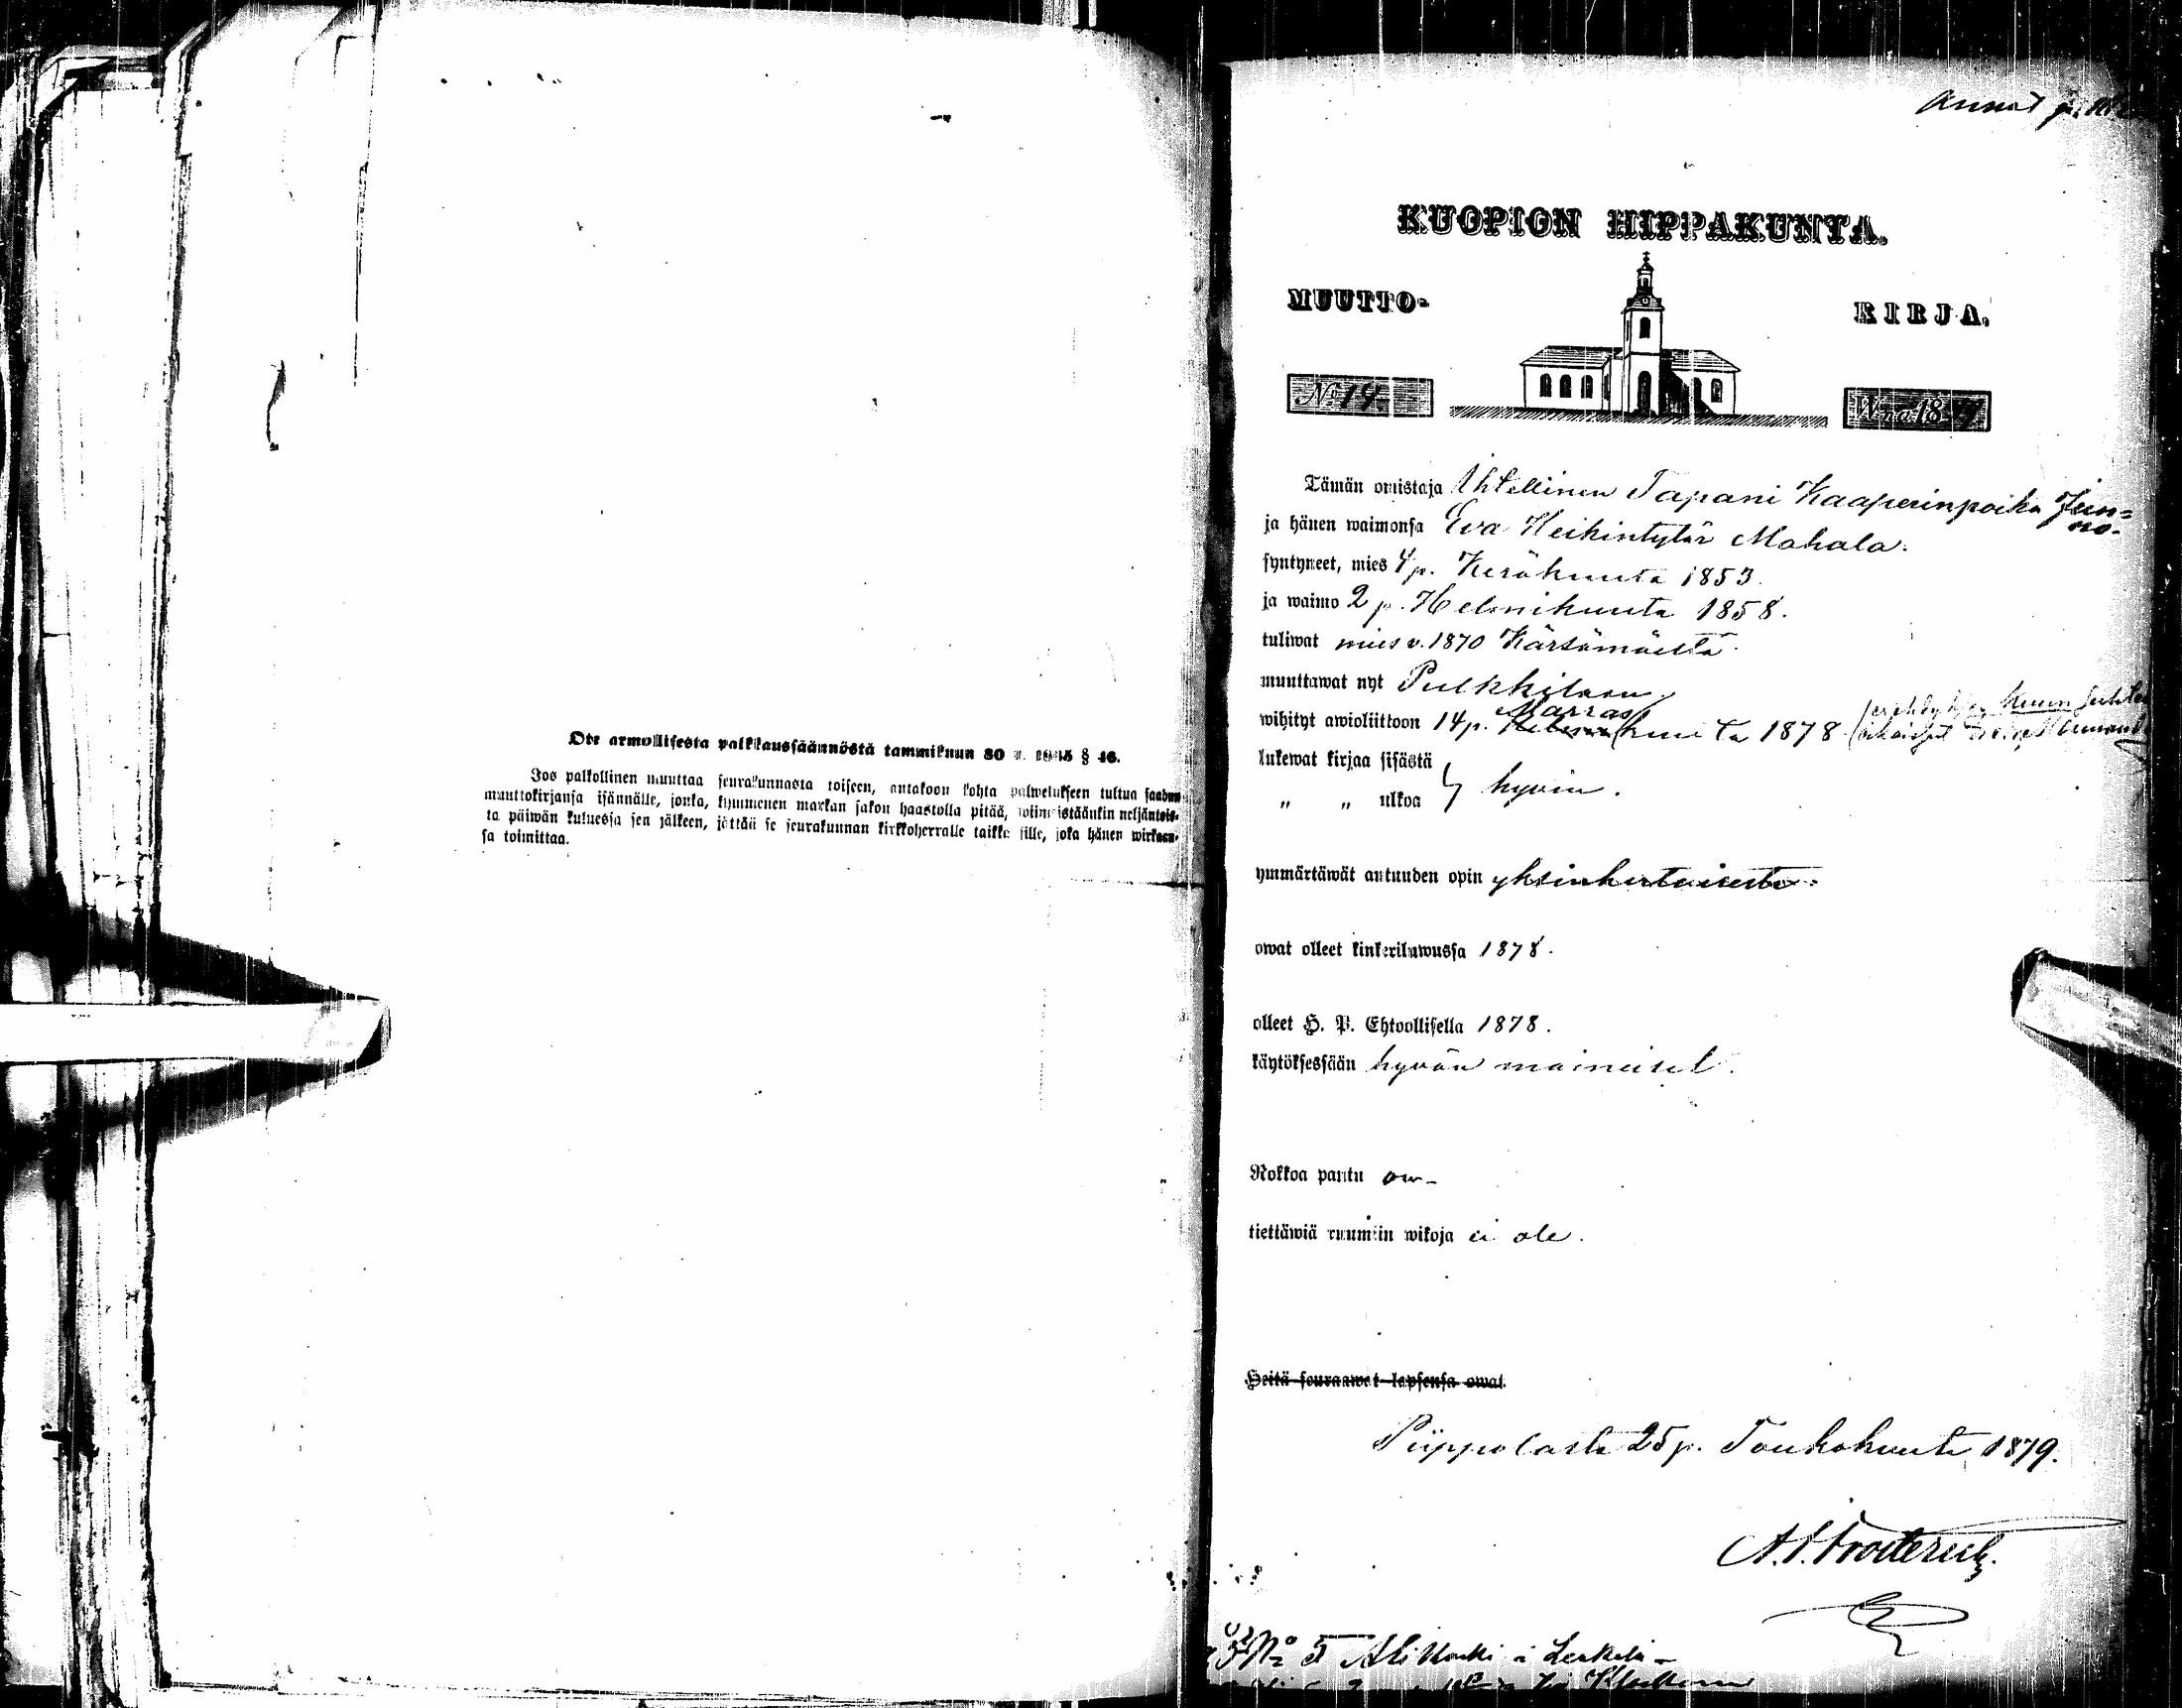 Ote armollisesta palkkaussäännöstä tammikuun 30 § 46.
Jos palkollinen muuttaa seurakunnasta toiseen, antakoon kohta palwelukseen tultua saadun
muuttokirjansa isännälle, jonka, kymmenen markan sakon haastolla pitää, wiimeistäänkin neljäntois-
ta päiwän kuluessa sen jälkeen, jättää se seurakunnan kirkkoherralle taikka sille, joka hänen wirkaan-
sa toimittaa.
KUOPION HIPPAKUNTA.
MUUTTO- KIRJA.
No 19. W:na 18
Tämän omistaja Itsellinen Tapani Kaaperinpoika Jun-
no.
ja hänen waimonsa Eva Heikintytär Mahala.
syntyneet, mies 4 p. Kesäkuuta 1853.
ja waimo 2 p. Helmikuuta 1858.
tuliwat mies v. 1870 Kärsämäeltä.
muuttawat nyt Pulkkilaan
Marras
wihityt awioliittoon 14 p. kuuta 1878
lukewat kirjaa sisästä
" " ulkoa } hyvin.
ymmärtäwät autuuden opin yksinkertaisesti.
owat olleet kinkeriluwussa 1878.
olleet H. P. Ehtoollisella 1878.
käytöksessään hyvän maineiset.
Rokkoa pantu on-
tiettäwiä ruumiin wikoja ei ole.
Heitä seuraawat lapsensa owat
Piippolasta 25 p. Toukokuuta 1879.